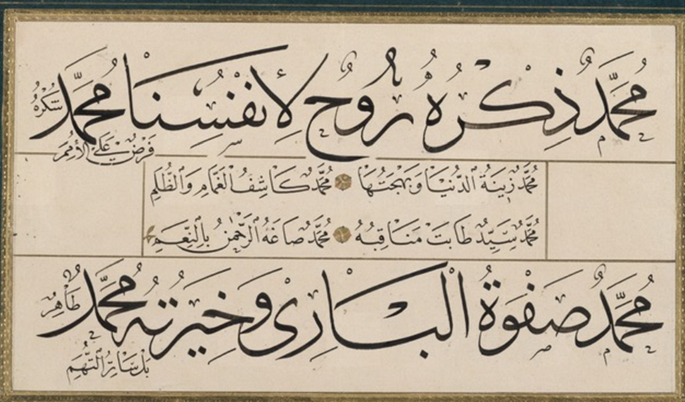 مُحَمَّدٌ ذِكْرُهُ رُوحٌ لِأَنْفُسِنَا مُحَمَّدٌ شُكْرُهُ
فَرْضٌ عَلَى الْأُمَمِ
مُحَمَّدٌ زِينَةُ الدُّنْيَا وَبَهْجَتُهَا مُحَمَّدٌ كَاشِفُ الْغَمَامِ وَالظُّلَمِ
مُحَمَّدٌ سَيِّدٌ طَابَتْ مَنَاقِبُهُ مُحَمَّدٌ صَاغَهُ الرَّحْمٰنُ بِالنِّعَمِ
مُحَمَّدٌ صَفْوَةُ الْبَارِى وَخِيرَتُهُ مُحَمَّدٌ طَاهِرٌ
بَلْ سَاتِرُ التُّهَمِ